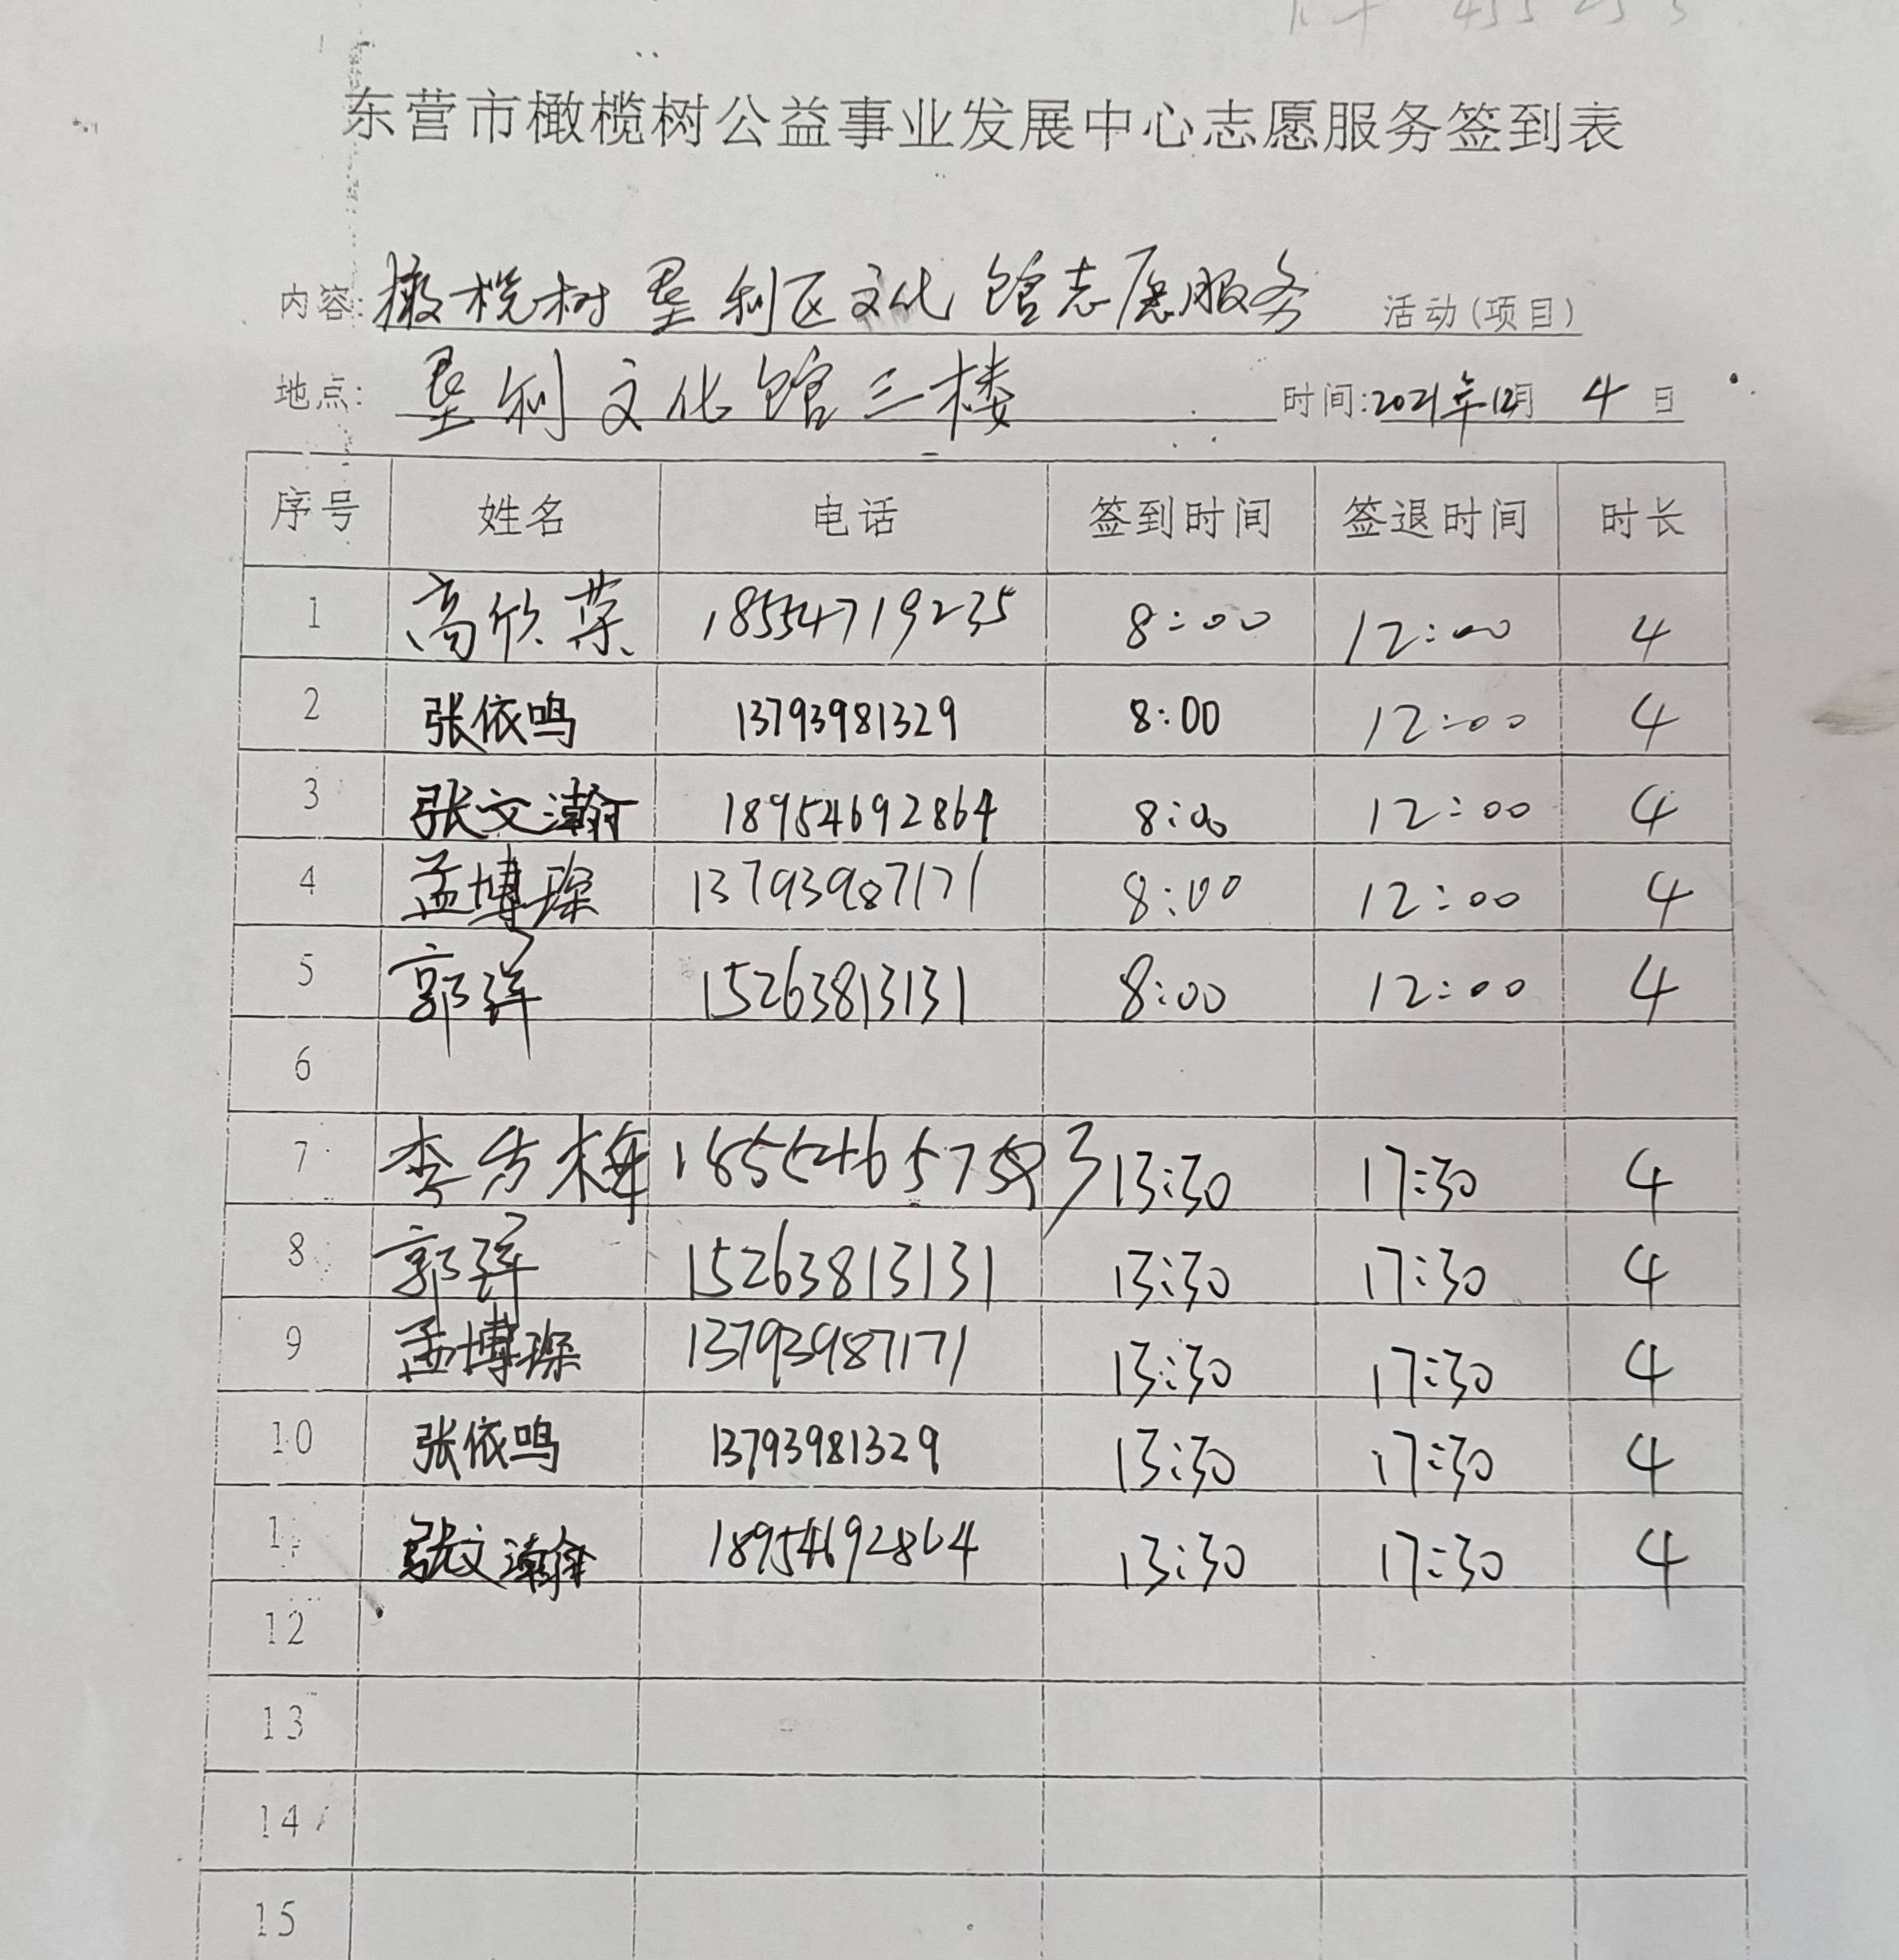 东营市橄榄树公益事业发展中心志愿服务签到表
内容:橄榄树垦利区文化馆志愿服务 活动(项目)
地点:垦利文化馆三楼 时间:2021年12月4日
序号 姓名 电话 签到时间 签退时间 时长
1 高欣荣 18554719235 8:00 12:00 4
2 张依鸣 13793981329 8:00 12:00 4
3 张文瀚 18954692864 8:00 12:00 4
4 孟博琛 13793987171 8:00 12:00 4
5 郭 15263813131 8:00 12:00 4
6
7 李 梅 13:30 17:30 4
8 郭 15263813131 13:30 17:30 4
9 孟博琛 13793987171 13:30 17:30 4
10 张依鸣 13793981329 13:30 17:30 4
1 张文瀚 18954692864 13:30 17:30 4
12
13
14
15